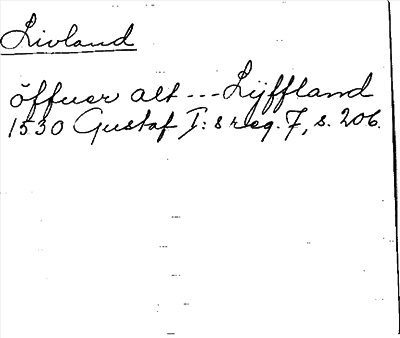 Livland
öffuer alt --- Lijffland
1530 Gustaf I:s reg. 7, s. 206.